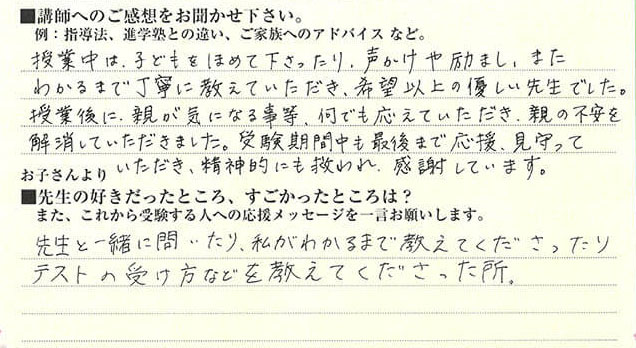 ■講師へのご感想をお聞かせ下さい。
例：指導法、進学塾との違い、ご家族へのアドバイス など。
授業中は、子どもをほめて下さったり、声かけや励まし、また
わかるまで丁寧に教えていただき、希望以上の優しい先生でした。
授業後に、親が気になる事等、何でも応えていただき、親の不安を
解消していただきました。受験期間中も最後まで応援、見守って
いただき、精神的にも救われ、感謝しています。
お子さんより
■先生の好きだったところ、すごかったところは？
また、これから受験する人への応援メッセージを一言お願いします。
先生と一緒に問いたり、私がわかるまで教えてくださったり
テストの受け方などを教えてくださった所。